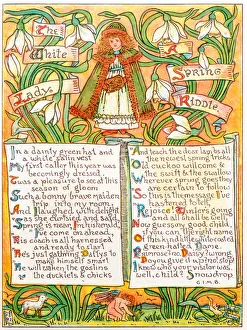 The White Lady's
A Spring Riddle
In a dainty green hat and
a white satin vest
My first caller this year was
becomingly dressed.
'Twas a pleasure to see at this
season of gloom
Such a bonny brave maiden
trip into my room
And I laughed with delight
as she curtsied and said
Spring is near, I'm his herald
I've come on ahead,
His coach is all harnessed
and ready to start
He's just gathering Daisys to
make himself smart
He will waken the goslins
the ducklets & chicks
And teach the dear lambs all
the newest spring tricks
Old cuckoo will come &
the swift & the swallow
Wherever spring goes they
are certain to follow
So this is the message I've
hastened to tell,
Rejoice! Spring's going
and all shall be well
Now guessing good child,
if you can, the name
Of this kind little white coated
green hatted Dame.
Primrose? no, Daisy? wrong
Do you give it up? not stop
I know who your visitor was,
well, child? Snowdrop
G.I.M.B.